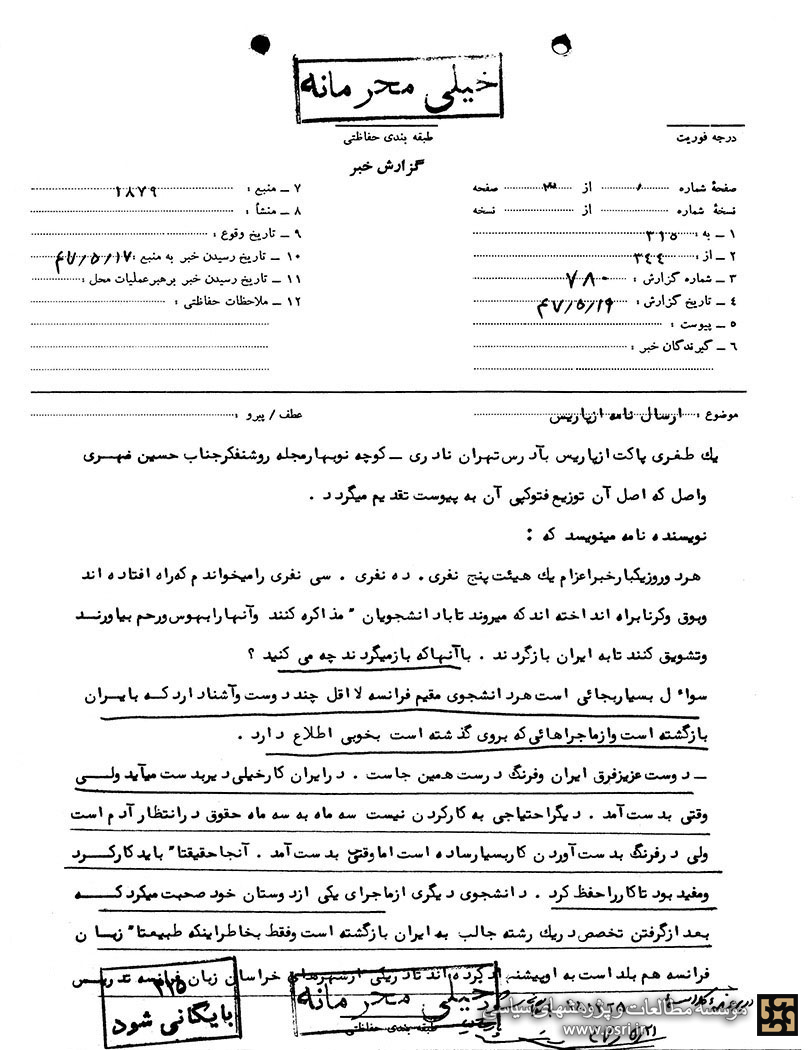 خیلی محرمانه
طبقه بندی حفاظتی
درجه فوریت
گزارش خبر
صفحهٔ شماره ۱ از صفحه
نسخهٔ شماره از نسخه
۱ ـ به : ۳۱۵
۲ ـ از : ۳۴۴
۳ ـ شماره گزارش : ۷۸۰
۴ ـ تاریخ گزارش : ۴۷/۵/۱۹
۵ ـ پیوست :
۶ ـ گیرندگان خبر :
۷ ـ منبع : ۱۸۷۹
۸ ـ منشأ :
۹ ـ تاریخ وقوع :
۱۰ ـ تاریخ رسیدن خبر به منبع : ۴۷/۵/۱۷
۱۱ ـ تاریخ رسیدن خبر برهبر عملیات محل :
۱۲ ـ ملاحظات حفاظتی :
موضوع : ارسال نامه از پاریس
عطف / پیرو :
یك طغری پاکت از پاریس بآدرس تهران نادری ــ کوچه نوبهار مجله روشنفکر جناب حسین
واصل که اصل آن توزیع فتوکپی آن به پیوست تقدیم میگردد .
نویسنده نامه مینویسد که :
هر دو روز یکبار خبر اعزام یك هیئت پنج نفری . ده نفری . سی نفری را میخواندم که راه افتاده اند
وبوق وکرنا براه انداخته اند که میروند تا با دانشجویان " مذاکره کنند وآنها را بهوس ورحم بیاورنـد
وتشویق کنند تا به ایران بازگردند . با آنهاکه باز میگردند چه می کنید ؟
سواٴل بسیار بجائی است هر دانشجوی مقیم فرانسه لا اقل چند دوست وآشنا دارد کـه بایــران
بازگشته است واز ماجراهائی که بروی گذشته است بخوبی اطلاع دارد .
ــ دوست عزیز فرق ایران وفرنگ درست همین جاست . در ایران کار خیلی دیر بدست میآید ولــی
وقتی بدست آمد . دیگر احتیاجی به کارکردن نیست سه ماه به سه ماه حقوق در انتظار آدم است
ولی در فرنگ بدست آوردن کار بسیار ساده است اما وقتی بدست آمد . آنجا حقیقتا" باید کار کــرد
ومفید بود تا کار را حفظ کرد . دانشجوی دیگری از ماجرای یکی از دوستان خود صحبت میکرد کــه
بعد از گرفتن تخصص در یك رشته جالب به ایران بازگشته است وفقط بخاطر اینکه طبیعتا" زبــان
فرانسه هم بلد است به او پیشنهاد کرده اند تا در یکی از شهرهای خراسان زبان فرانسه تدریــس
۳۱۵
بایگانی شود
خیلی محرمانه
طبقه بندی حفاظتی
موسسه مطالعات و پژوهشهای سیاسی
www.psri.ir